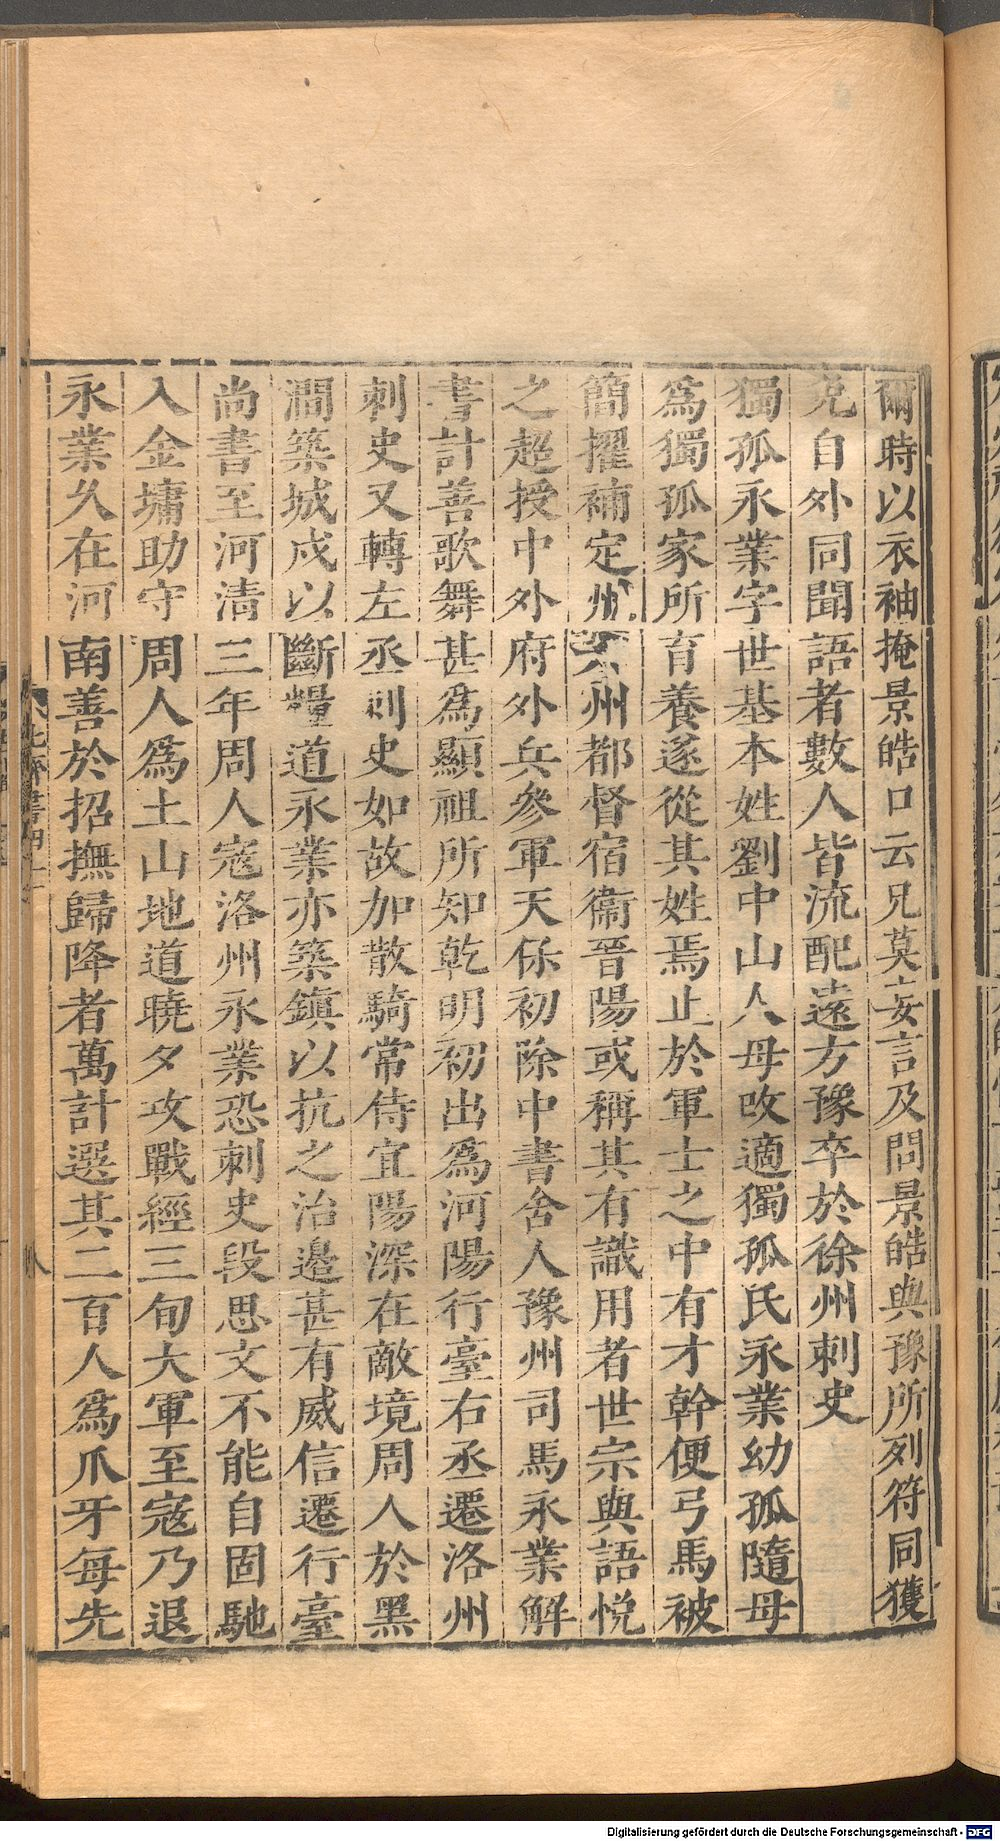 爾時以衣袖掩景皓口云兄莫妄言及問景皓與豫所列符同獲
免自外同聞語者數人皆流配遠方豫卒於徐州刺史
獨孤永業字世基本姓劉中山人母改適獨孤氏永業幼孤隨母
爲獨孤家所育養遂從其姓焉止於軍士之中有才幹便弓馬被
簡擢補定州六州都督宿衞晉陽或稱其有識用者世宗與語悅
之超授中外府外兵參軍天保初除中書舍人豫州司馬永業解
書計善歌舞甚爲顯祖所知乾明初出爲河陽行臺右丞遷洛州
刺史又轉左丞刺史如故加散騎常侍宜陽深在敵境周人於黑
澗築城戍以斷糧道永業亦築鎮以抗之治邊甚有威信遷行臺
尚書至河清三年周人寇洛州永業恐刺史段思文不能自固馳
入金墉助守周人爲土山地道曉夕攻戰經三旬大軍至寇乃退
永業久在河南善於招撫歸降者萬計選其二百人爲爪牙每先
北齊書四十一
八
Digitalisierung gefördert durch die Deutsche Forschungsgemeinschaft - DFG